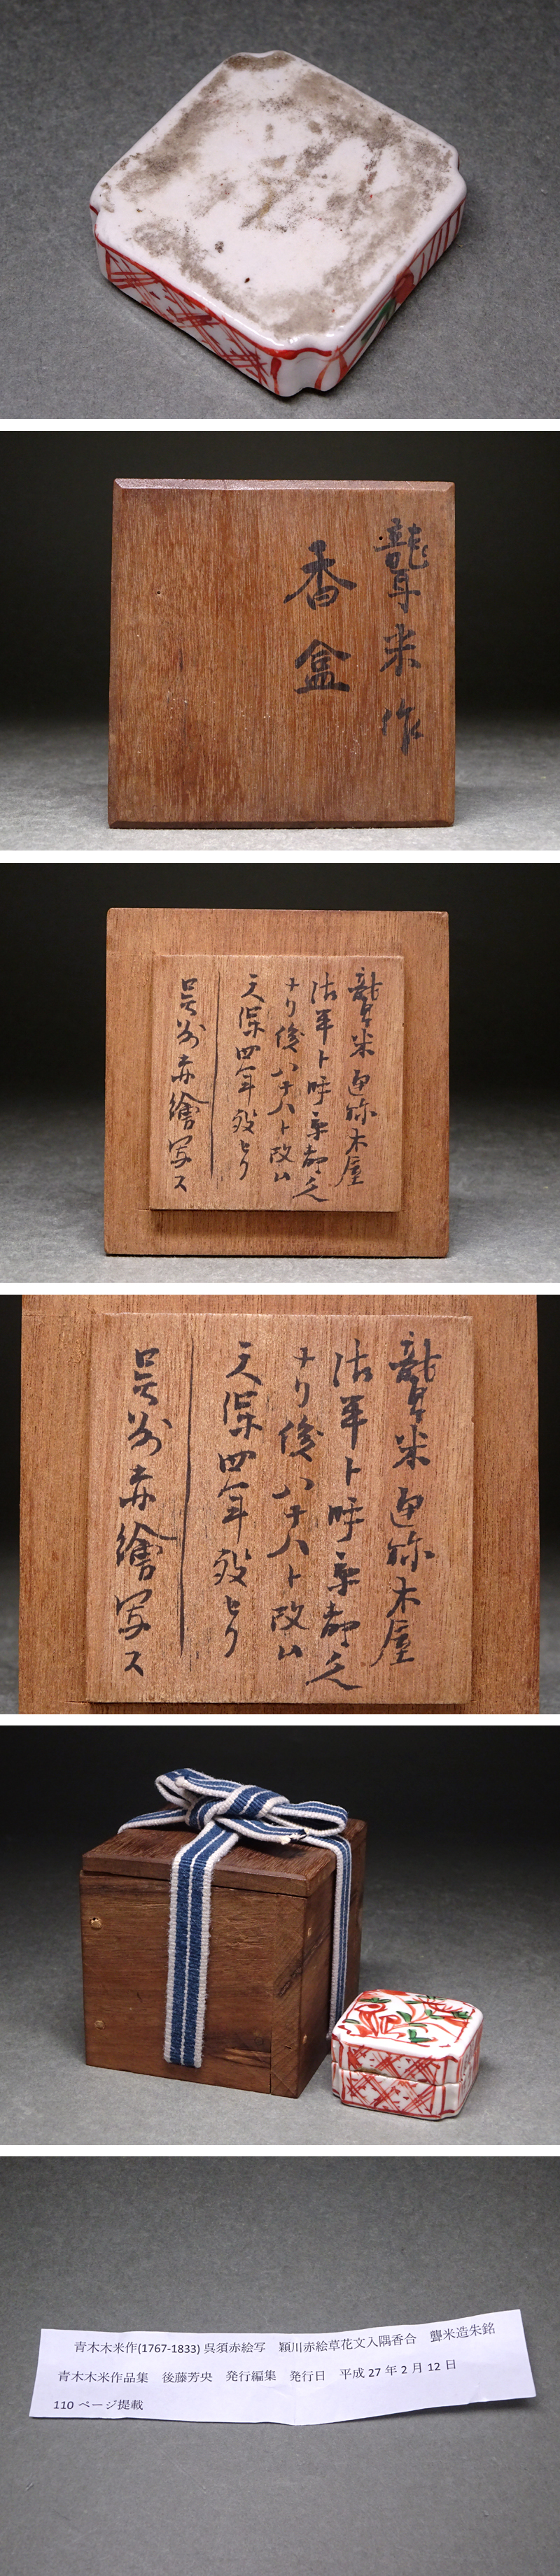 聾米作
香盒
聾米 通称木屋
佐平ト呼 京都之人
ナリ後ハ
天保四年歿セリ
呉州赤繪写ス
聾米 通称木屋
佐平ト呼 京都之人
ナリ後ハ
天保四年歿セリ
呉州赤繪写ス
青木木米作(1767-1833) 呉須赤絵写 穎川赤絵草花文入隅香合 聾米造朱銘
青木木米作品集 後藤芳央 発行編集 発行日 平成 27 年 2 月 12 日
110 ページ提載